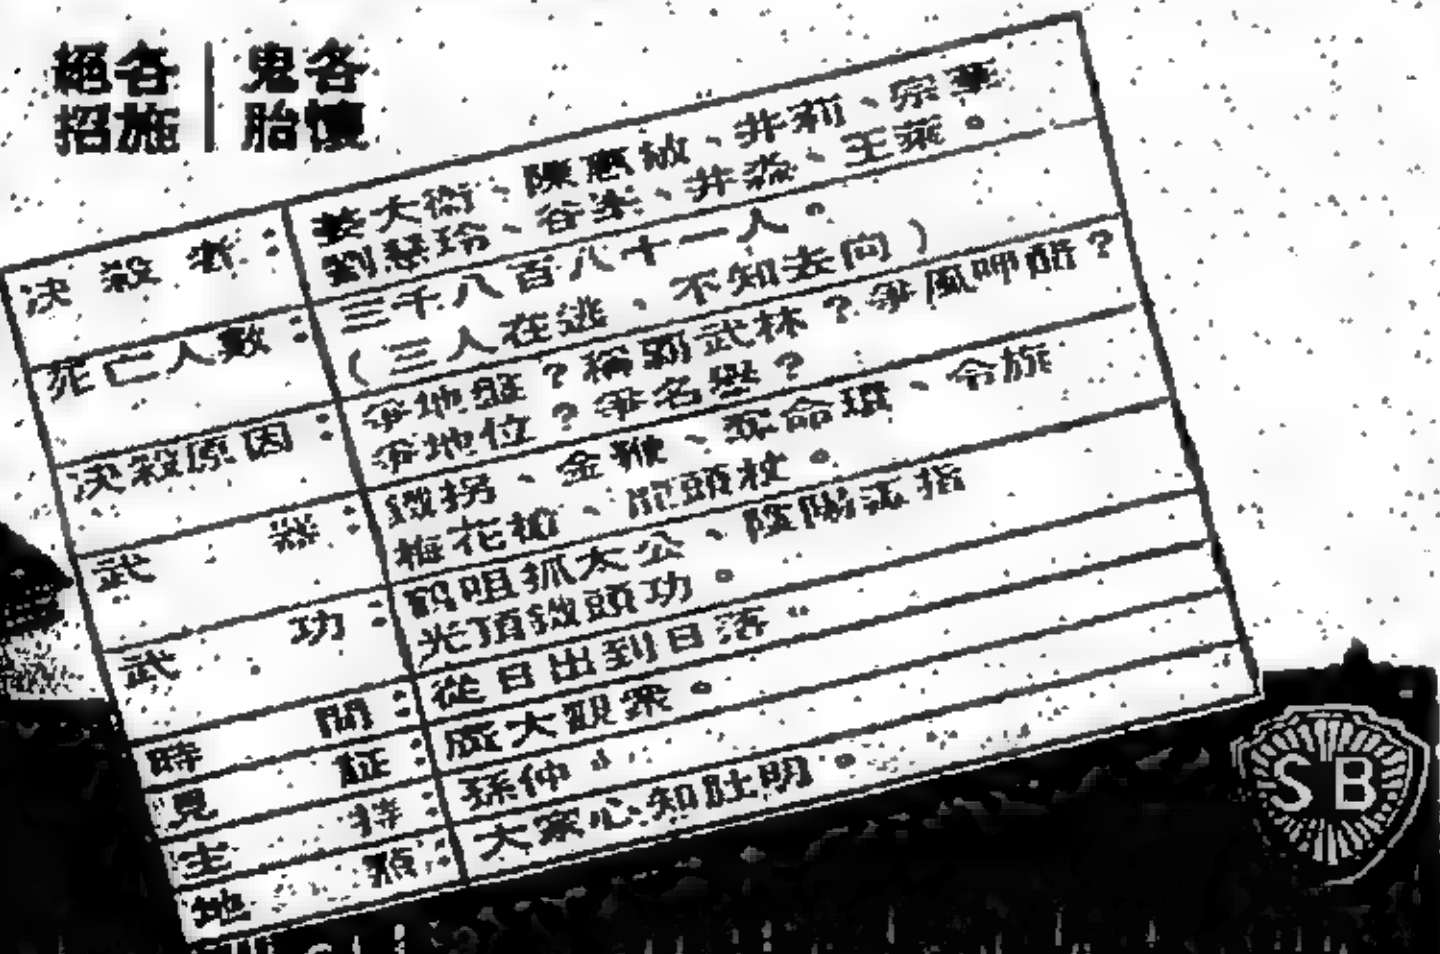 各懷鬼胎
各施絕招
決殺者：
姜大衛、陳惠敏、井莉、宗華
劉慧玲、谷峯、井淼、王萊。
死亡人數：
三千八百八十一人。
（三人在逃、不知去向）
決殺原因：
爭地盤？稱霸武林？爭風呷醋？
爭地位？爭名譽？
武器：
鐵拐、金鞭、奪命環、令旗
梅花槍、龍頭杖。
武功：
咀抓太公、陰陽指
光頂鐵頭功。
時間：
從日出到日落。
見証：
廣大觀衆。
主持：
孫仲
地點：
大家心知肚明。
SB